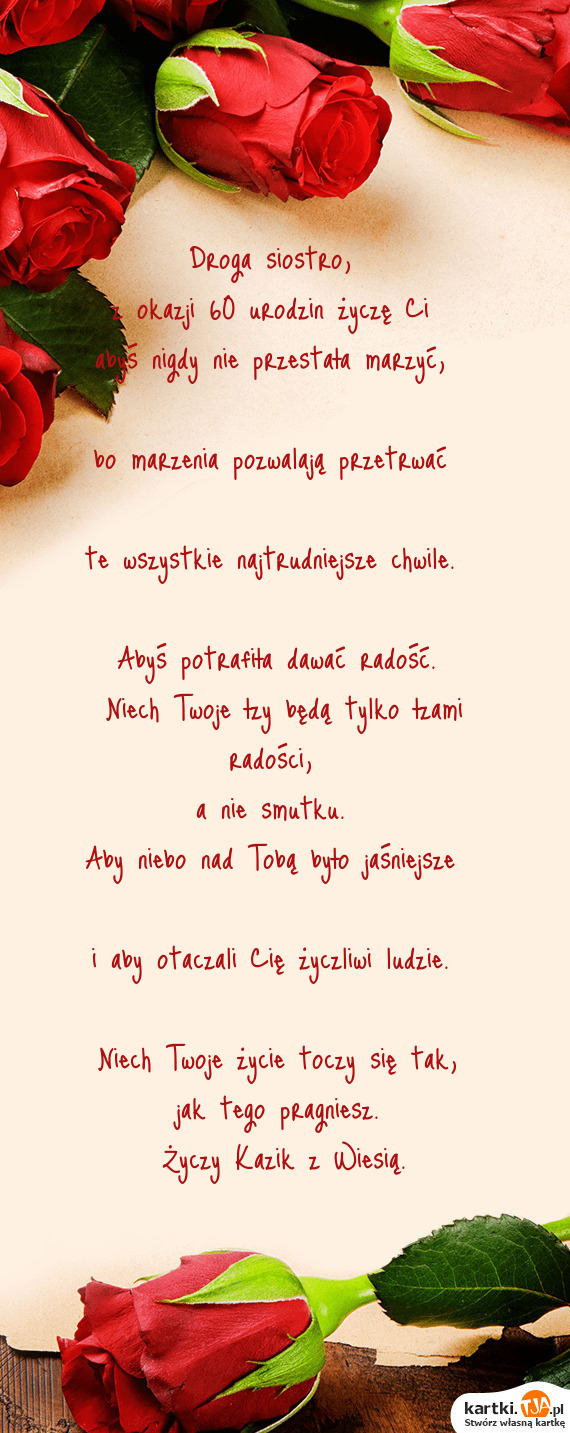 Droga siostro,
z okazji 60 urodzin życzę Ci
abyś nigdy nie przestała marzyć,
bo marzenia pozwalają przetrwać
te wszystkie najtrudniejsze chwile.
Abyś potrafiła dawać radość.
Niech Twoje łzy będą tylko łzami
radości,
a nie smutku.
Aby niebo nad Tobą było jaśniejsze
i aby otaczali Cię życzliwi ludzie.
Niech Twoje życie toczy się tak,
jak tego pragniesz.
Życzy Kazik z Wiesią.
kartki.TJA.pl
Stwórz własną kartkę